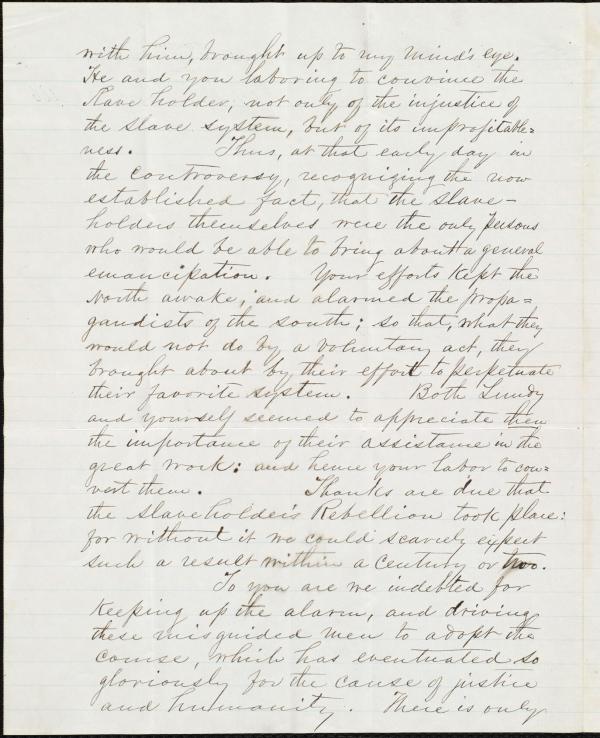 with him, brought up to my mind's eye.
He and you laboring to convince the
Slave holder, not only of the injustice of
the slave system, but of its improfitable=
ness. Thus, at that early day in
the controversy, recognizing the now
established fact, that the slave-
holders themselves were the only persons
who would be able to bring about a general
emancipation. Your efforts kept the
North awake, and alarmed the propa=
gandists of the south; so that, what they
would not do by a voluntary act, they
brought about by their effort to perpetuate
their favorite system. Both Lundy
and yourself seemed to appreciate then
the importance of their assistance in the
great work: and hence your labor to con=
vert them. Thanks are due that
the slaveholder's Rebellion took place:
for without it we could scarcely expect
such a result within a century or two.
To you are we indebted for
keeping up the alarm, and driving
these misguided men to adopt the
course, which has eventuated so
gloriously for the cause of justice
and humanity. There is only